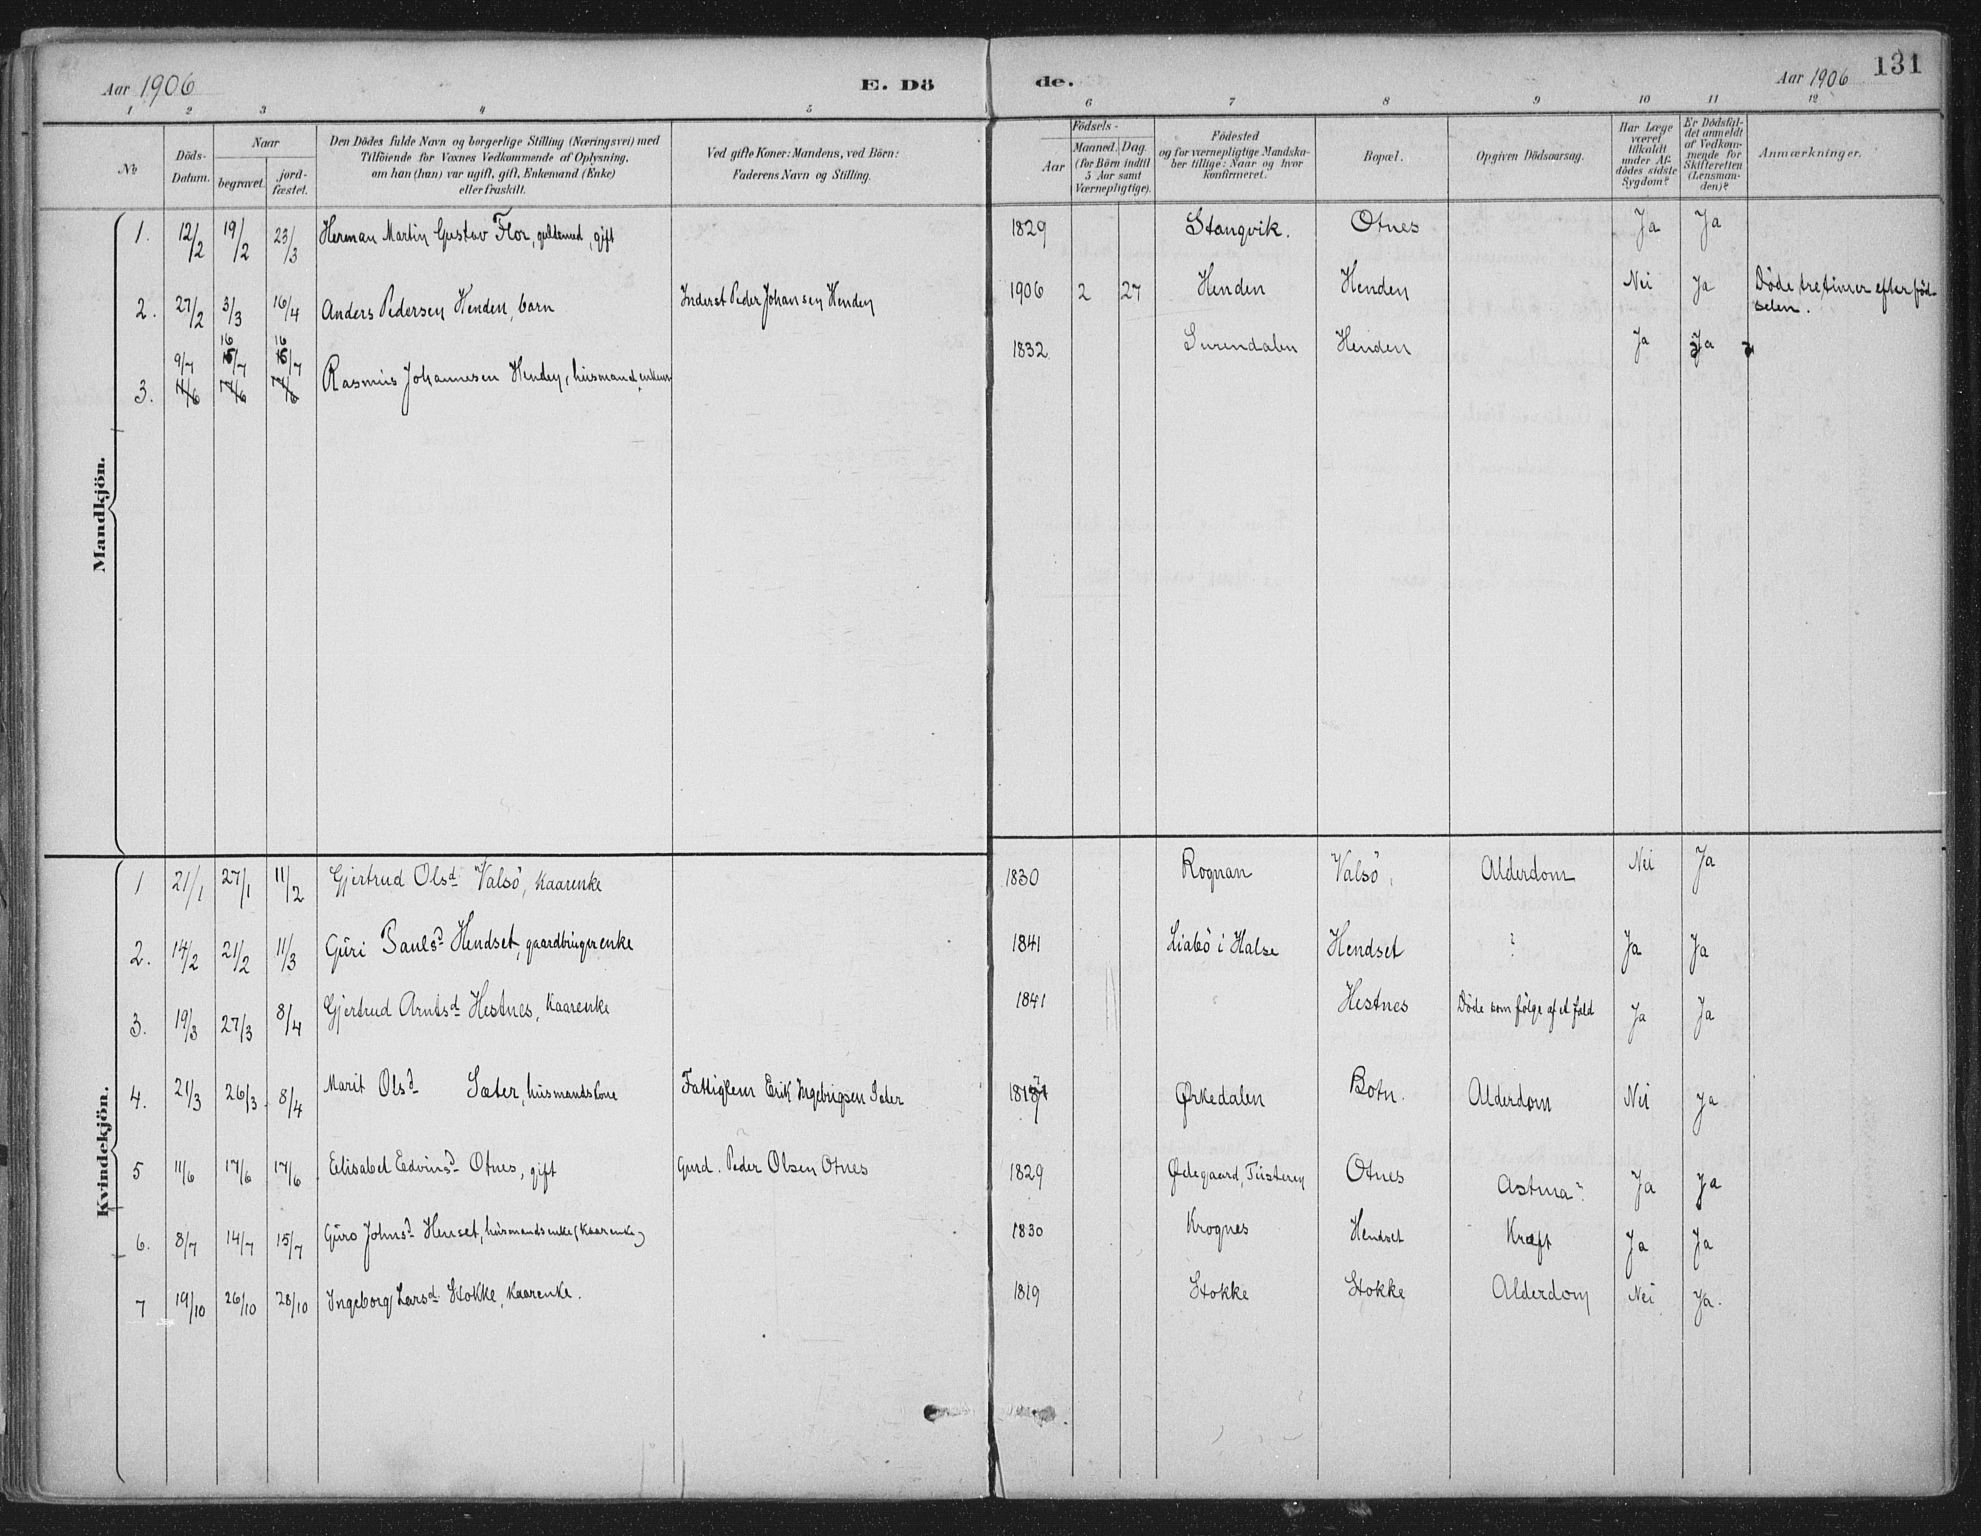 Aar 1906
E. Dö
de.
Aar 1906
131
1 2 3 4 5 6 7 8 9 10 11 12
No
Döds-Datum.
Naar
begravet.
jord-fæstet.
Den Dödes fulde Navn og borgerlige Stilling (Næringsvei) med
Tilföiende for Voxnes Vedkommende af Oplysning,
om han (hun) var ugift, gift, Enkemand (Enke)
eller fraskilt.
Ved gifte Koner: Mandens, ved Börn:
Faderens Navn og Stilling.
Födsels-
Aar
Maaned. Dag.
(for Börn indtil
5 Aar samt
Værnepligtige).
Födested
og for værnepligtige Mandska-
ber tillige: Naar og hvor
konfirmeret.
Bopæl.
Opgiven Dödsaarsag.
Har Læge
været
tilkaldt
under Af-
dödes sidste
Sygdom?
Er Dödsfal-
det anmeldt
af Vedkom-
mende for
Skifteretten
(Lensman-
den)?
Anmærkninger.
Mandkjön.
1. 12/2 19/2 23/3 Herman Martin Gustav Flor, guldsmed, gift 1829 Stangvik. Otnes Ja Ja
2. 27/2 3/3 16/4 Anders Pedersen Henden, barn Inderst Peder Johansen Henden 1906 2 27 Henden Henden Nei Ja Döde tre timer efter föd-
selen.
9/7 16/7 16/7
3. 11/6 17/6 17/6 Rasmus Johannesen Henden, husmand, enkem 1832 Surendalen Henden Ja Ja
Kvindekjön.
1 21/1 27/1 11/2 Gjertrud Olsd Valsö, Kaarenke 1830 Rognan Valsö, Alderdom Nei Ja
2. 14/2 21/2 11/3 Guri Paulsd Hendset, gaardbrugerenke 1841 Liabö i Halse Hendset ? Ja Ja
3. 19/3 27/3 8/4 Gjertrud Arntsd Hestnes, Kaarenke 1841 Hestnes Döde som følge af et fald Ja Ja
4. 21/3 26/3 8/4 Marit Olsd Sæter, husmandskone Fattiglem Erik Ingebrigsen Seter Ørkedalen Botn. Alderdom Nei Ja
5 11/6 17/6 17/6 Elisabet Edvinsd Otnes, gift Gmd. Peder Olsen Otnes 1829 Ødegaard, Tusteren Otnes Astma? Ja Ja
6. 8/7 14/7 15/7 Guro Johnsd Henset, husmandsenke (Kaarenke) 1830 Krognes Hendset Kræft Ja Ja
7 19/10 26/10 28/10 Ingeborg Larsd Stokke, Kaarenke. 1819 Stokke Stokke Alderdom Nei Ja.